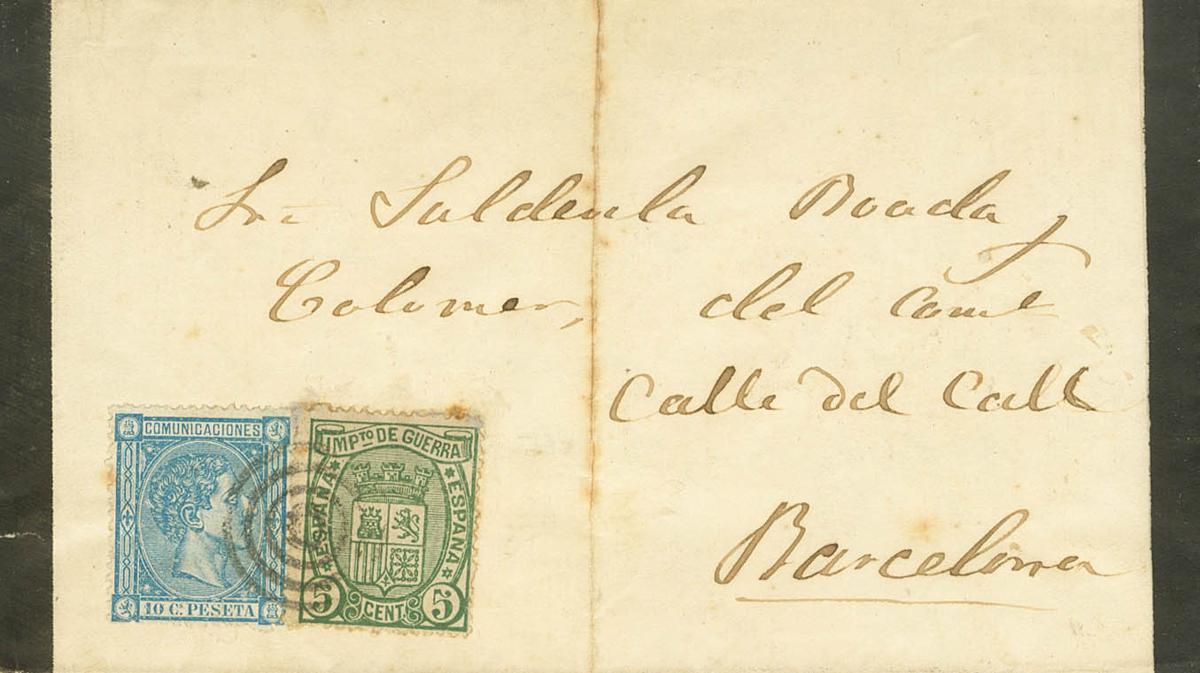 Sra Saldenla Boada y
Colomer, del Come
Calle del Call
Barcelona
COMUNICACIONES
10 Cs PESETA
IMPTO DE GUERRA
ESPAÑA
ESPAÑA
5 CENT. 5